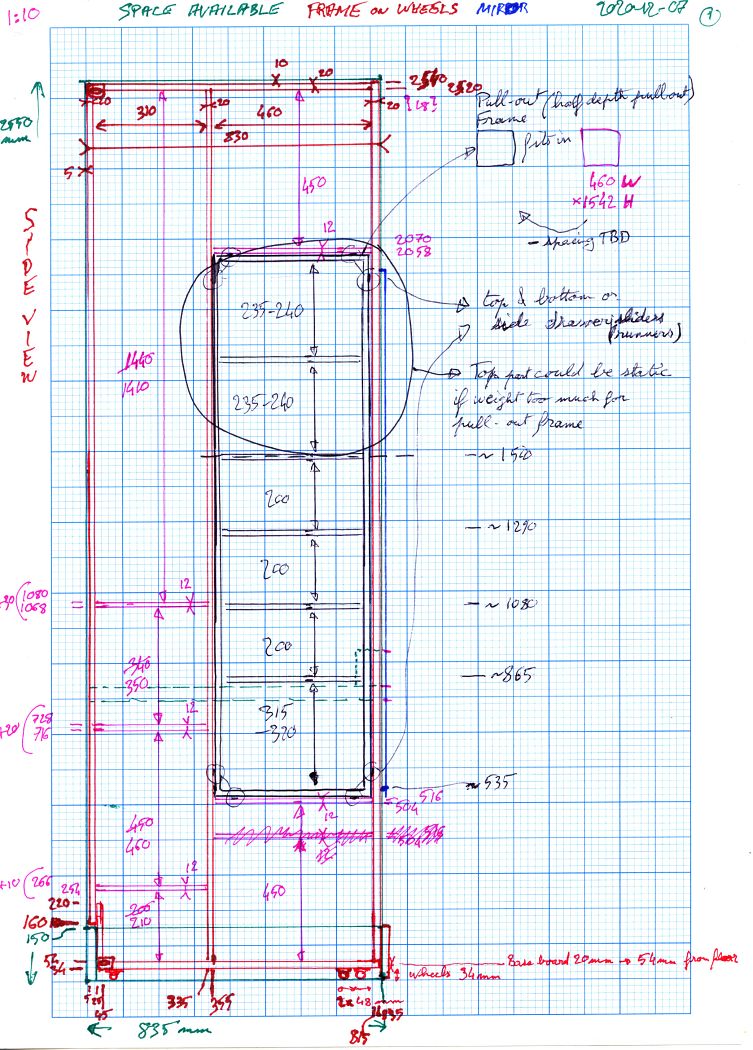 1:10
SPACE AVAILABLE FRAME on WHEELS MIRROR
2020-12-07
1
10
20
2540
2520
20
310
20
460
20
18
830
2550
mm
5
450
Pull-out (half depth pull out)
Frame
fits in
460 W
×1542 H
- spacing TBD
SIDE VIEW
12
2070
2058
235-240
top & bottom or
side drawer sliders
(runners)
1440
1410
235-240
Top part could be static
if weight too much for
pull-out frame
200
~ 1290
200
12
1080
1068
~ 1080
200
~865
340
350
315
-320
12
+20 (728
716
~ 535
516
504
12
450
460
12
+10 (266
254
450
220
200
210
160
150
54
34
Base board 20mm → 54mm from floor
wheels 34mm
45
335
355
2x 48
835 mm
815
835